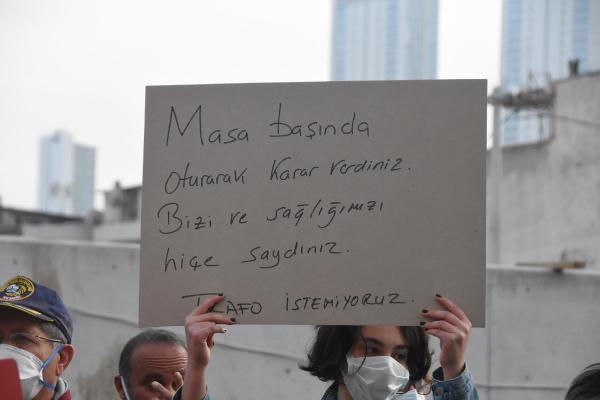 Masa başında
oturarak Karar verdiniz.
Bizi ve sağlığımızı
hiçe saydınız.
TRAFO İSTEMİYORUZ.